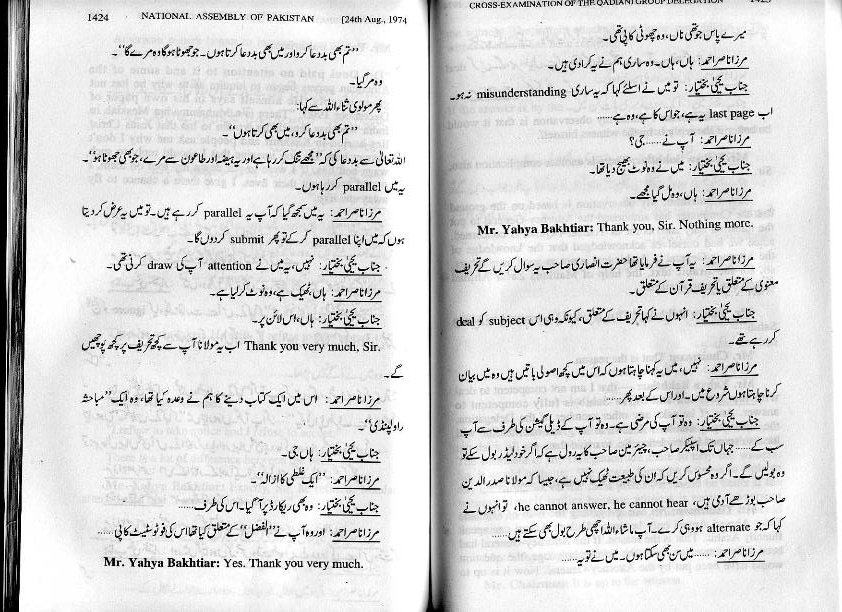 1424 NATIONAL ASSEMBLY OF PAKISTAN [24th Aug., 1974
"تم بھی بددعا کرو اور میں بھی بددعا کرتا ہوں۔ جو جھوٹا ہوگا وہ مرے گا"۔
وہ مر گیا۔
پھر مولوی ثناءاللہ سے کہا:
"تم بھی بددعا کرو، میں بھی کرتا ہوں"۔
اللہ تعالیٰ سے بددعا کی کہ "مجھے تنگ کر رہا ہے اور یہ ہیضہ اور طاعون سے مرے، جو بھی جھوٹا ہو"۔
یہ میں parallel کر رہا ہوں۔
مرزا ناصر احمد: یہ میں سمجھ گیا کہ آپ یہ parallel کر رہے ہیں۔ تو میں یہ عرض کر دیتا
ہوں کہ میں اپنا parallel کر کے تو پھر submit کر دوں گا۔
جناب یحییٰ بختیار: نہیں، یہ میں نے attention آپ کی draw کرنی تھی۔
مرزا ناصر احمد: ہاں، ٹھیک ہے، وہ نوٹ کر لیا ہے۔
جناب یحییٰ بختیار: ہاں، اس لائن پر۔
Thank you very much, Sir. اب یہ مولانا آپ سے کچھ تحریف پر کچھ پوچھیں
گے۔
مرزا ناصر احمد: اس میں ایک کتاب دینے کا ہم نے وعدہ کیا تھا، وہ ایک "مباحثہ
راولپنڈی"۔
جناب یحییٰ بختیار: ہاں جی۔
مرزا ناصر احمد: "ایک غلطی کا ازالہ"۔
جناب یحییٰ بختیار: وہ بھی ریکارڈ پر آ گیا۔ اس کی طرف......
مرزا ناصر احمد: اور وہ آپ نے "الفضل" کے متعلق کیا تھا اس کی فوٹوسٹیٹ کاپی......
Mr. Yahya Bakhtiar: Yes. Thank you very much.
CROSS-EXAMINATION OF THE QADIANI GROUP DELEGATION 1425
میرے پاس جو تھی ناں، وہ چھوٹی کاپی تھی۔
مرزا ناصر احمد: ہاں، ہاں۔ وہ ساری ہم نے یہ کرا دی ہیں۔
جناب یحییٰ بختیار: تو میں نے اسلئے کہا کہ یہ ساری misunderstanding نہ ہو۔
اب last page یہ ہے، جو اس کا ہے، وہ ہے......
مرزا ناصر احمد: آپ نے...... جی؟
جناب یحییٰ بختیار: میں نے وہ نوٹ بھیج دیا تھا۔
مرزا ناصر احمد: ہاں، وہ مل گیا مجھے۔
Mr. Yahya Bakhtiar: Thank you, Sir. Nothing more.
مرزا ناصر احمد: یہ آپ نے فرمایا تھا حضرت انصاری صاحب یہ سوال کریں گے تحریف
معنوی کے متعلق یا تحریف قرآن کے متعلق۔
جناب یحییٰ بختیار: انہوں نے کہا تحریف کے متعلق، کیونکہ وہی اس subject کو deal
کر رہے تھے۔
مرزا ناصر احمد: نہیں، میں یہ کہنا چاہتا ہوں کہ اس میں کچھ اصولی باتیں ہیں وہ میں بیان
کرنا چاہتا ہوں شروع میں۔ اور اس کے بعد پھر......
جناب یحییٰ بختیار: وہ تو آپ کی مرضی ہے۔ وہ تو آپ کے ڈیلی گیشن کی طرف سے آپ
سب کے...... جہاں تک اسپیکر صاحب، چیئرمین صاحب کا یہ رول ہے کہ اگر خود لیڈر بول سکے تو
وہ بولیں گے۔ اگر وہ محسوس کریں کہ ان کی طبیعت ٹھیک نہیں ہے، جیسا کہ مولانا صدر الدین
صاحب بوڑھے آدمی ہیں، he cannot answer, he cannot hear، تو انہوں نے
کہا کہ جو alternate ہو وہی کرے۔ آپ ماشاءاللہ اچھی طرح بول بھی سکتے ہیں......
مرزا ناصر احمد: ......میں سن بھی سکتا ہوں۔ میں نے تو یہ......